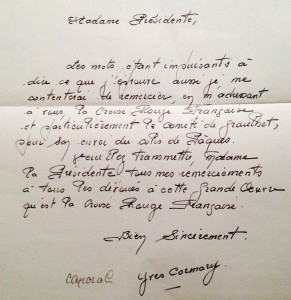 Madame Présidente,
Les mots étant impuissants à
dire ce que j'éprouve aussi je me
contenterai de remercier, en m'adressant
à vous, la Croix Rouge Française
et particulièrement le comité de
pour son envoi du colis de Pâques.
Veuillez transmettre, Madame
la Présidente tous mes remerciements
à tous les dévoués à cette Grande Oeuvre
qu'est la Croix Rouge Française.
Bien Sincèrement.
Caporal Yves Cormary